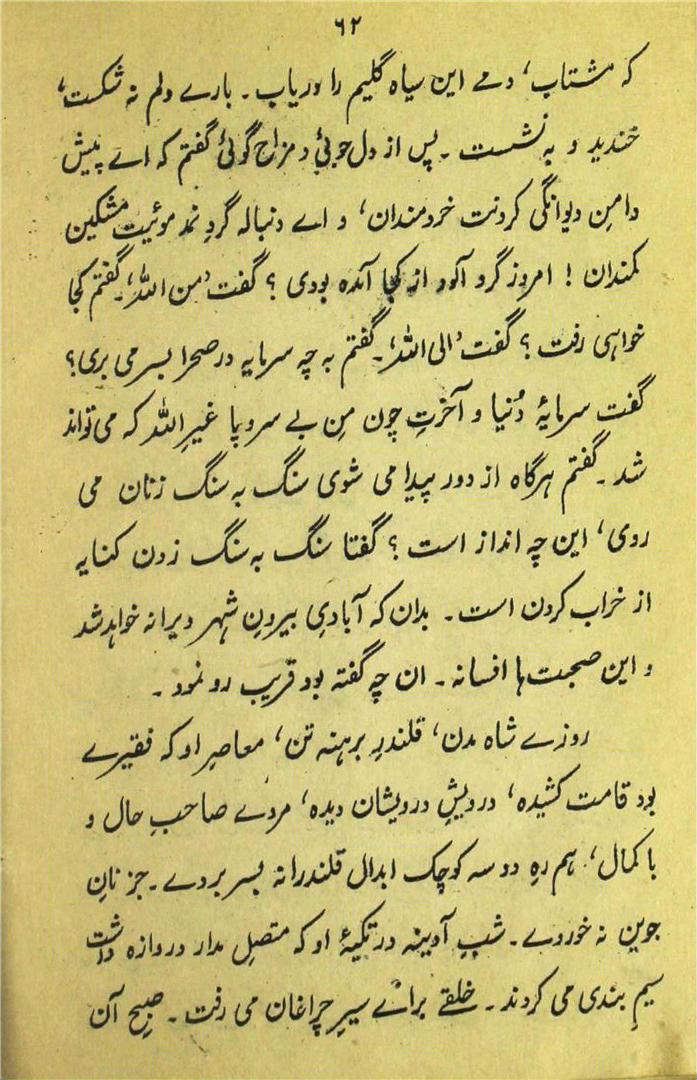 ۶۲
که مشتاب، دمے این سیاه گلیم را دریاب۔ بارے دلم نہ شکست،
خندید و بہ نشست۔ پس از دل جوئیِ و مزاج گوئی گفتم که اے پیش
دامنِ دیوانگی کردنت خردمندان، و اے دنباله گردِ نمد موئیت مشکین
کمندان! امروز گرد آلود از کجا آمده بودی؟ گفت ’من اللہ‘۔ گفتم کجا
خواہی رفت؟ گفت ’الی اللہ‘۔ گفتم بہ چہ سرمایہ در صحرا بسر می بری؟
گفت سرمایۂ دُنیا و آخرتِ چون منِ بے سروپا غیرِ اللہ که می تواند
شد۔ گفتم ہرگاه از دور پیدا می شوی سنگ بہ سنگ زنان می
روی، این چہ انداز است؟ گفتا سنگ بہ سنگ زدن کنایہ
از خراب کردن است۔ بدان که آبادیِ بیرونِ شہر ویرانہ خواہد شد
و این صحبت ہا افسانہ۔ ان چہ گفتہ بود قریب رو نمود۔
روزے شاه مدن، قلندرِ برہنہ تن، معاصرِ او که فقیرے
بود قامت کشیده، درویشِ درویشان دیده، مردے صاحبِ حال و
با کمال، ہم رهِ دو سہ کوچک ابدال قلندرانہ بسر بردے۔ جز نانِ
جوین نہ خوردے۔ شبِ آدینہ در تکیۂ او که متصلِ مدار دروازه داشت
سیم بندی می کردند۔ خلقے براے سیرِ چراغان می رفت۔ صبحِ آن